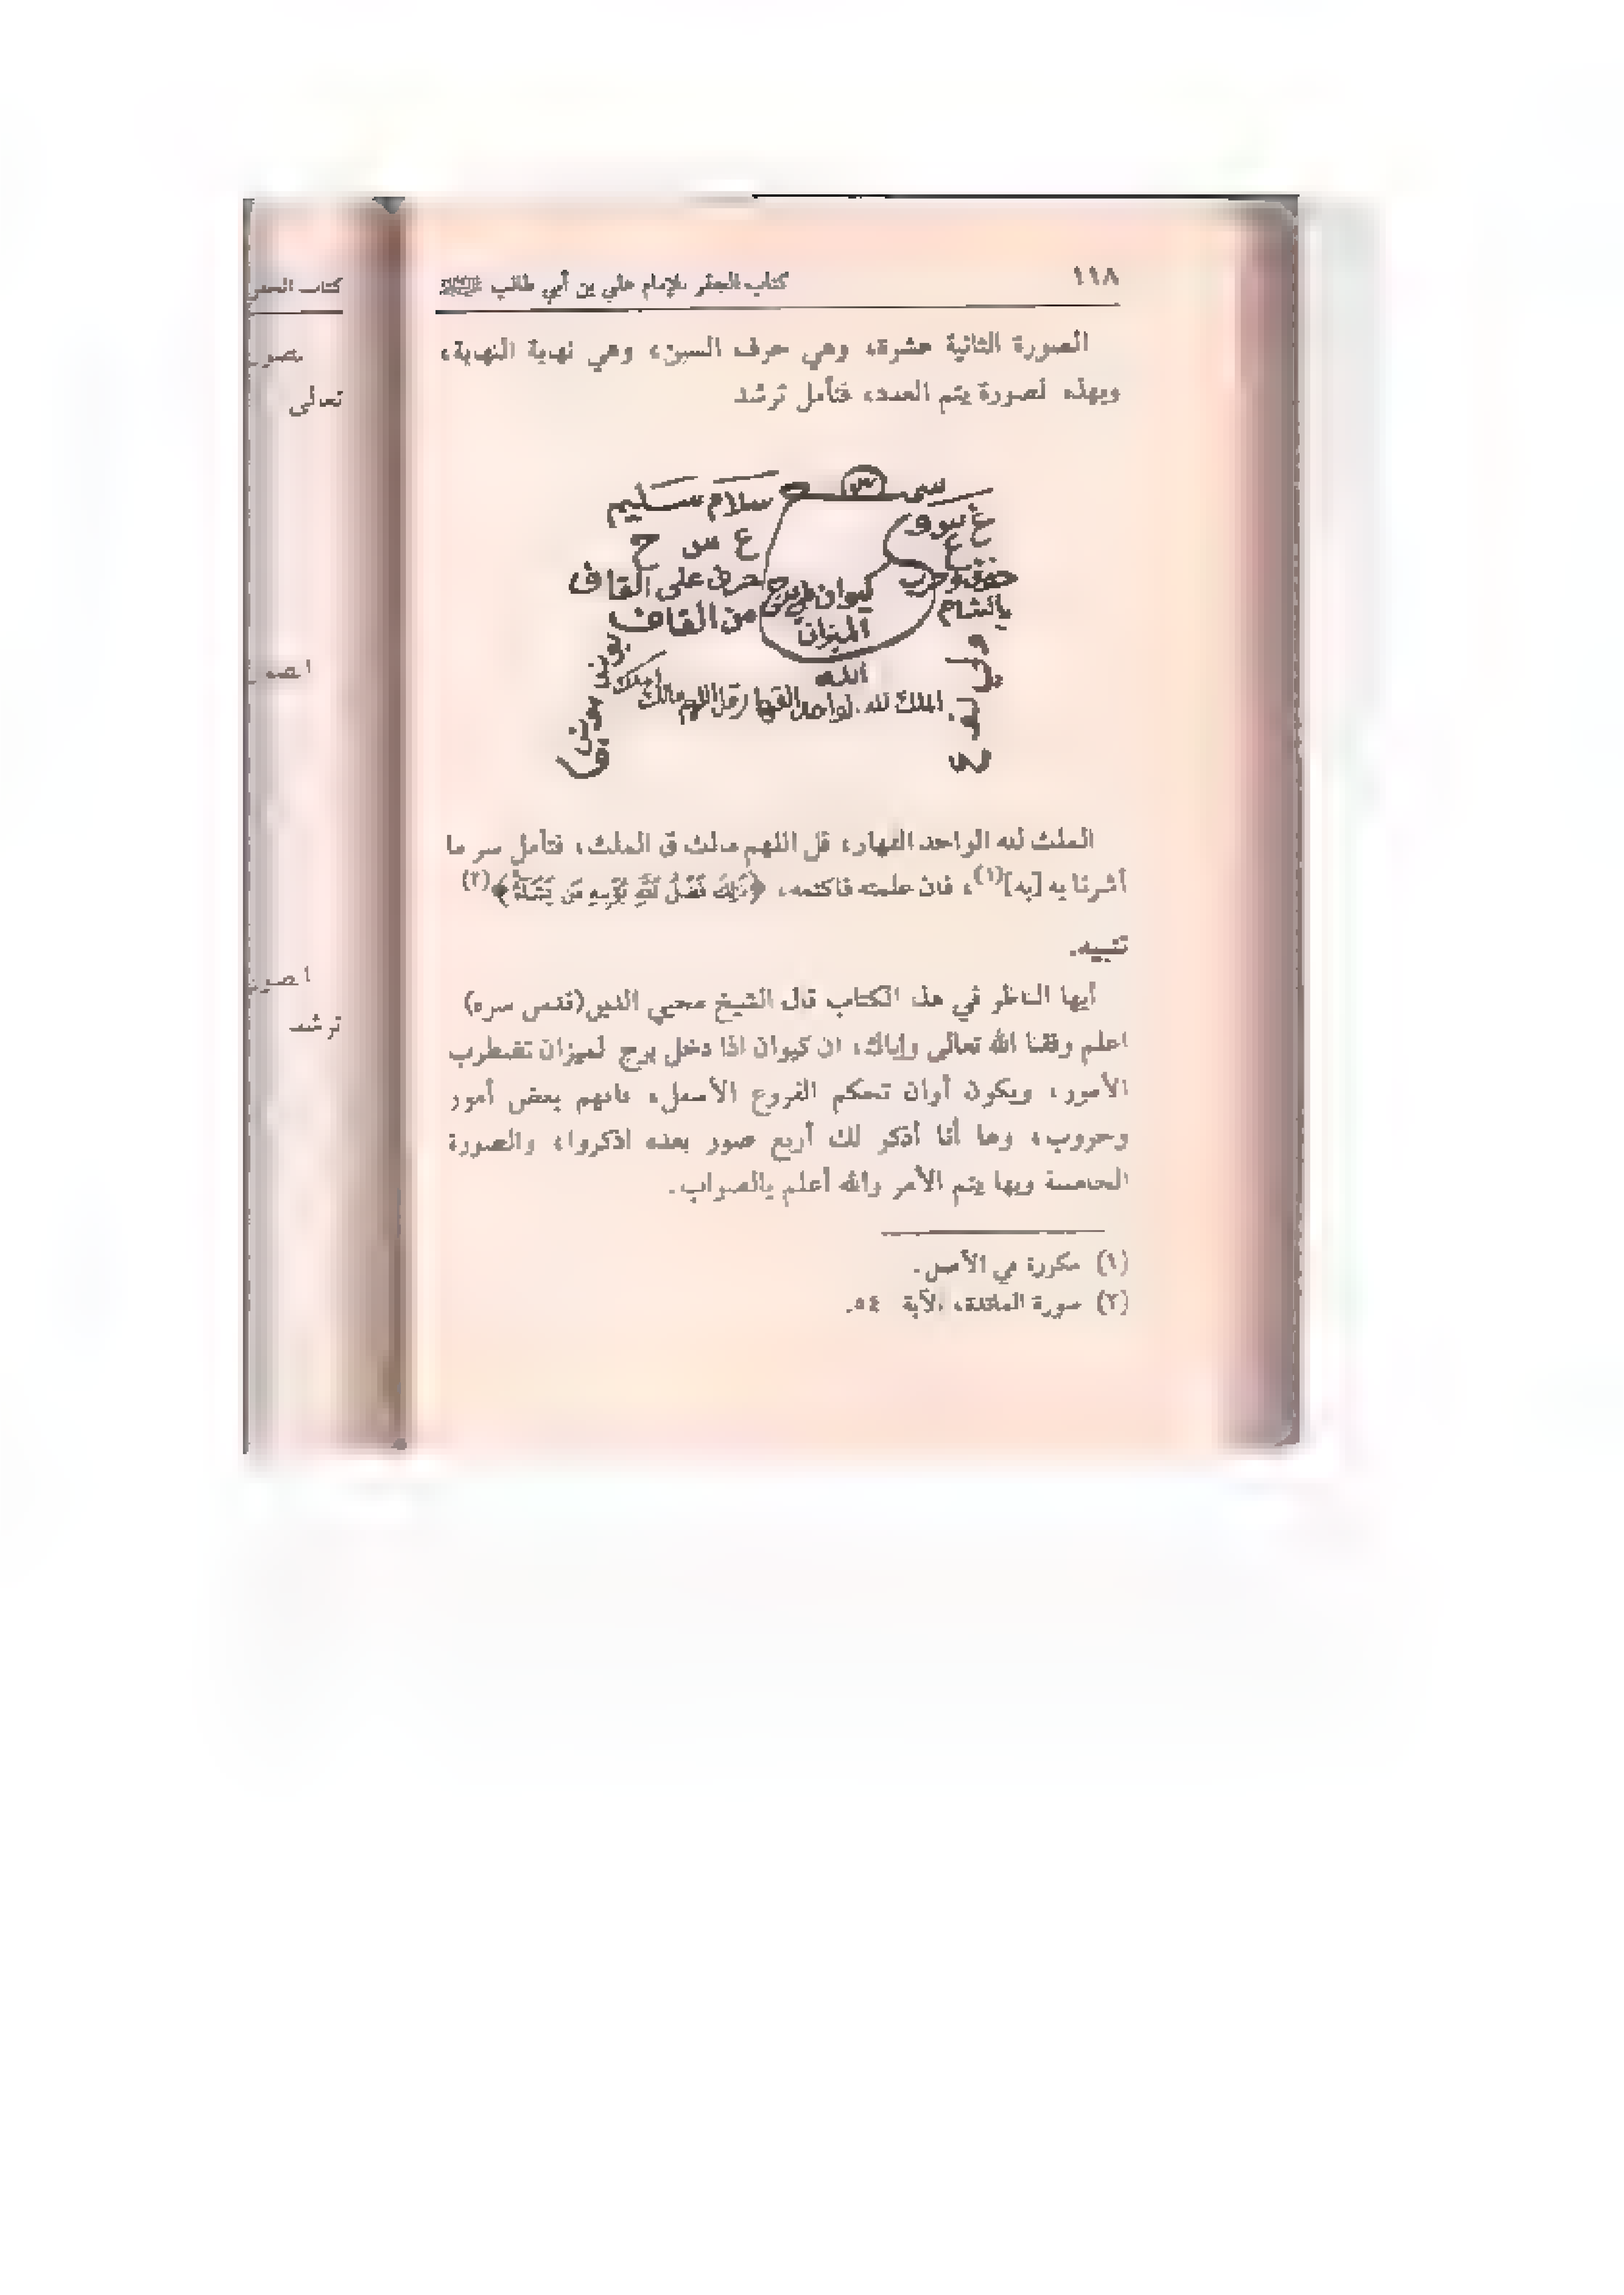 ١١٨
كتاب الجفر للإمام علي بن أبي طالب
الصورة الثانية عشرة، وهي حرف السين، وهي نهاية النهاية،
وبهذه لصورة يتم العدد، فتأمل ترشد
س
سلام سليم
ع س ح
حرف على القاف
من القاف
كيوان
برج
الميزان
بالشام
الله
الملك لله لواحد القهار قل اللهم مالك
الملك
الملك لله الواحد القهار، قل اللهم مالك ق الملك، فتأمل سر ما
أشرنا به [به](١)، فان علمته فاكتمه، ﴿ذَلِكَ فَضْلُ اللَّهِ يُؤْتِيهِ مَن يَشَاءُ﴾(٢)
تنبيه.
أيها الناظر في هذ الكتاب قال الشيخ محيي الدين(قدس سره)
اعلم وفقنا الله تعالى وإياك، ان كيوان اذا دخل برج لميزان تضطرب
الأمور، ويكون أوان تحكم الفروع الأسفل، فافهم بعض أمور
وحروب، وها أنا أذكر لك أربع صور بعده اذكروا، والصورة
الخامسة وبها يتم الأمر والله أعلم بالصواب.
(١) مكررة في الأصل.
(٢) سورة المائدة، الآية ٥٤.
كتاب الجفر
تعالى
ترشد